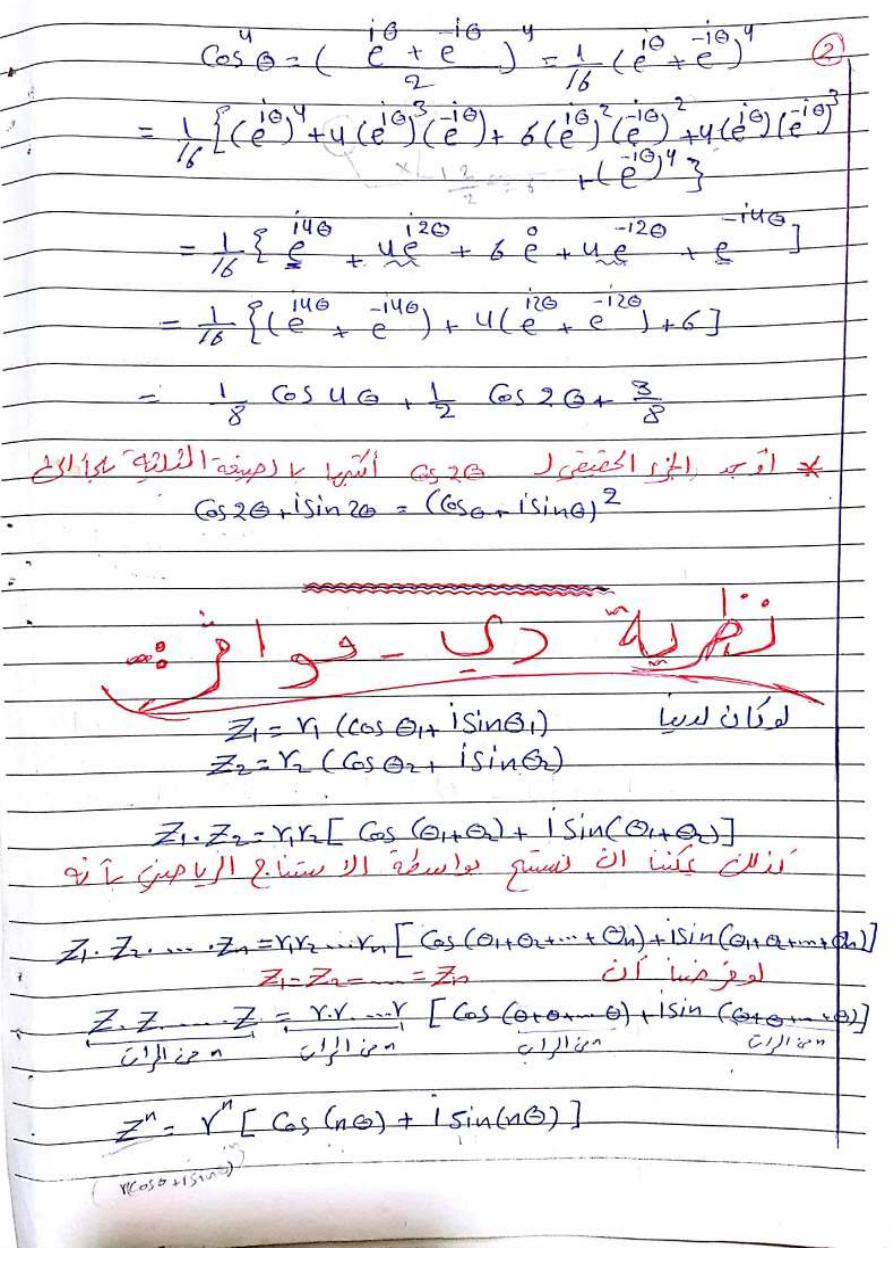 ②
Cos⁴θ = ( (e^{iθ} + e^{-iθ}) / 2 )⁴ = 1/16 (e^{iθ} + e^{-iθ})⁴
= 1/16 {(e^{iθ})⁴ + 4(e^{iθ})³(e^{-iθ}) + 6(e^{iθ})²(e^{-iθ})² + 4(e^{iθ})(e^{-iθ})³
+ (e^{-iθ})⁴}
= 1/16 { e^{i4θ} + 4e^{i2θ} + 6 e⁰ + 4e^{-i2θ} + e^{-i4θ} ]
= 1/16 {(e^{i4θ} + e^{-i4θ}) + 4(e^{i2θ} + e^{-i2θ}) + 6]
= 1/8 Cos 4θ + 1/2 Cos 2θ + 3/8
* أوجد الجزء الحقيقي لـ Cos 2θ أكتبها بالصيغة المثلثية
Cos2θ + i sin 2θ = (Cosθ + i sinθ)²
نظرية دي - موافر :
لو كان لدينا Z₁ = r₁ (Cos θ₁ + i Sin θ₁)
Z₂ = r₂ (Cos θ₂ + i sin θ₂)
Z₁ . Z₂ = r₁r₂ [ Cos (θ₁+θ₂) + i Sin(θ₁+θ₂)]
كذلك يمكننا ان نستنتج بواسطة الاستنتاج الرياضي بأنه
Z₁ . Z₂ . .... . Zn = r₁r₂ ... rn [ Cos (θ₁+θ₂+...+θn) + i sin(θ₁+θ₂+...+θn)]
لو فرضنا أن Z₁ = Z₂ = .... = Zn
Z . Z ..... Z = r.r. ...r [ Cos (θ+θ+... θ) + i sin (θ+θ+...+θ)]
n من المرات n من المرات n من المرات n من المرات
Zⁿ = rⁿ [ Cos (nθ) + i sin(nθ) ]
(r(cosθ + i sinθ))ⁿ